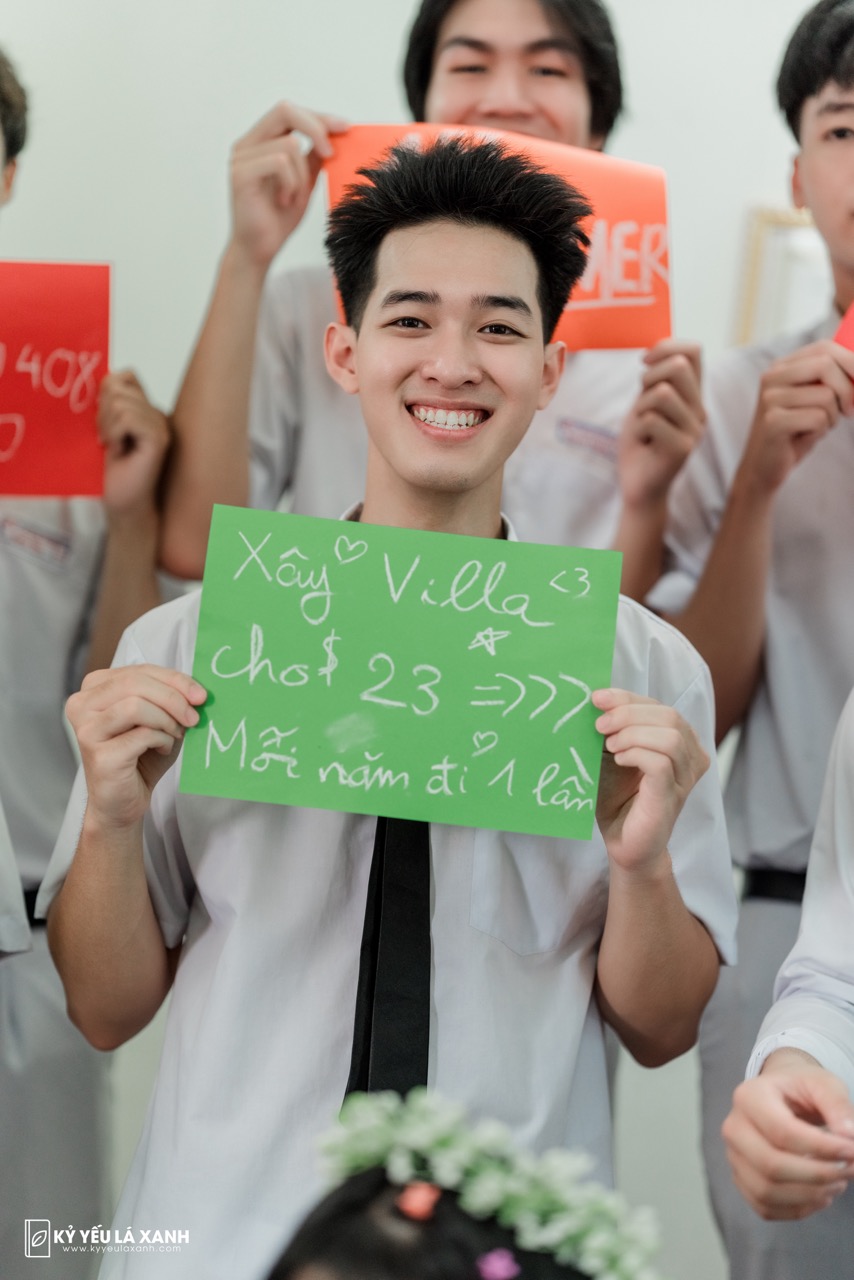 MER
408
Xây ♡ Villa <3
cho $ 23 =>>>
Mỗi năm đi ♡ 1 lần
KỶ YẾU LÁ XANH
www.kyyeulaxanh.com